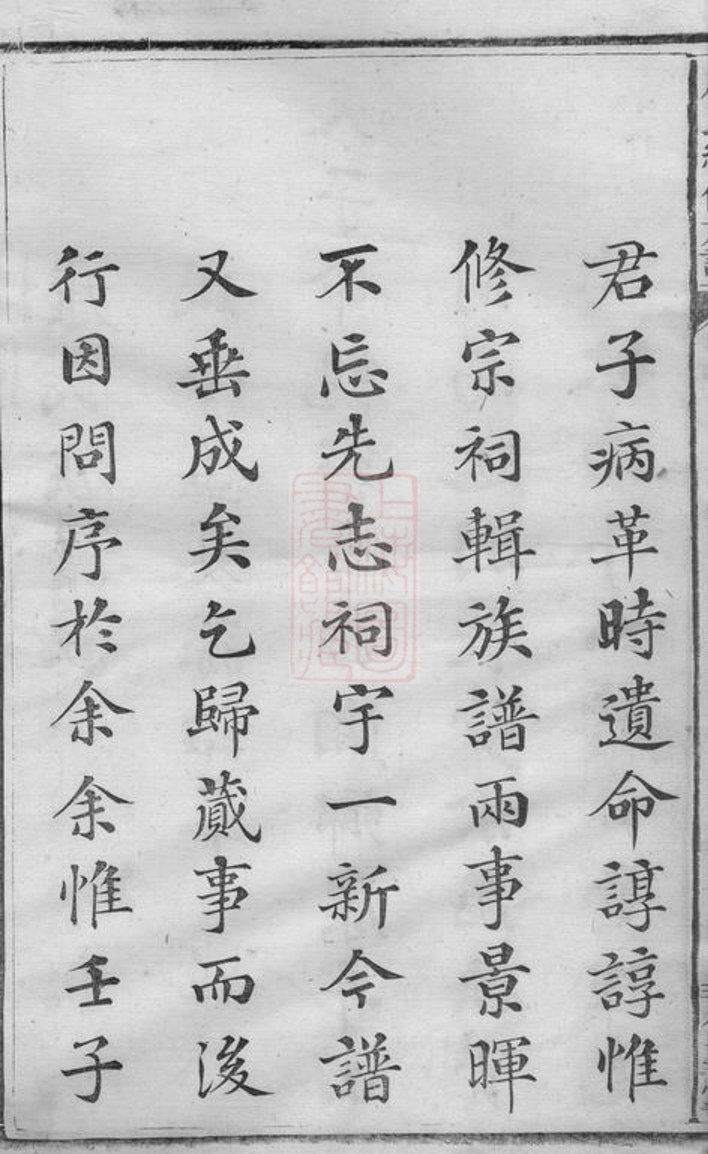 君子病革時遺命諄諄惟
修宗祠輯族譜兩事景暉
不忘先志祠宇一新今譜
又垂成矣乞歸蕆事而後
行因問序於余余惟壬子